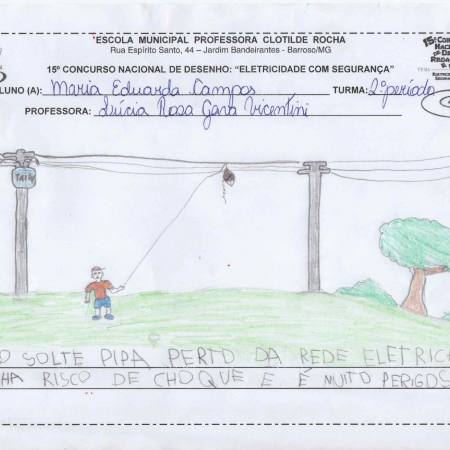 ESCOLA MUNICIPAL PROFESSORA CLOTILDE ROCHA
Rua Espírito Santo, 44 – Jardim Bandeirantes - Barroso/MG
15º CONCURSO NACIONAL DE DESENHO: "ELETRICIDADE COM SEGURANÇA"
LUNO (A): Maria Eduarda Campos TURMA: 2º período
PROFESSORA: Lúcia Rosa Gava Vicentini
15º CON
NACI
DE DE
REDA
O SOLTE PIPA PERTO DA REDE ELETRICA
HA RISCO DE CHOQUE E É MUITO PERIGOS